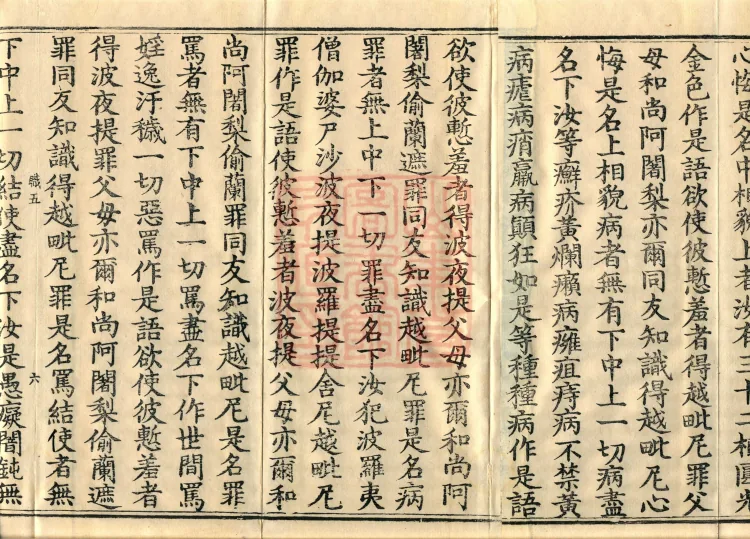 心悔是名中相貌上者汝有三十二相圓光
金色作是語欲使彼慙羞者得越毗尼罪父
母和尚阿闍梨亦爾同友知識得越毗尼心
悔是名上相貌病者無有下中上一切病盡
名下汝等癬疥黃爛癩病癰疽痔病不禁黃
病瘧病痟羸病顛狂如是等種種病作是語
欲使彼慙羞者得波夜提父母亦爾和尚阿
闍梨偷蘭遮罪同友知識越毗尼罪是名病
罪者無上中下一切罪盡名下汝犯波羅夷
僧伽婆尸沙波夜提波羅提提舍尼越毗尼
罪作是語使彼慙羞者波夜提父母亦爾和
尚阿闍梨偷蘭罪同友知識越毗尼是名罪
罵者無有下中上一切罵盡名下作世間罵
婬逸汙穢一切惡罵作是語欲使彼慙羞者
得波夜提罪父母亦爾和尚阿闍梨偷蘭遮
罪同友知識得越毗尼罪是名罵結使者無
職五
六
下中上一切結使盡名下汝是愚癡闇鈍無